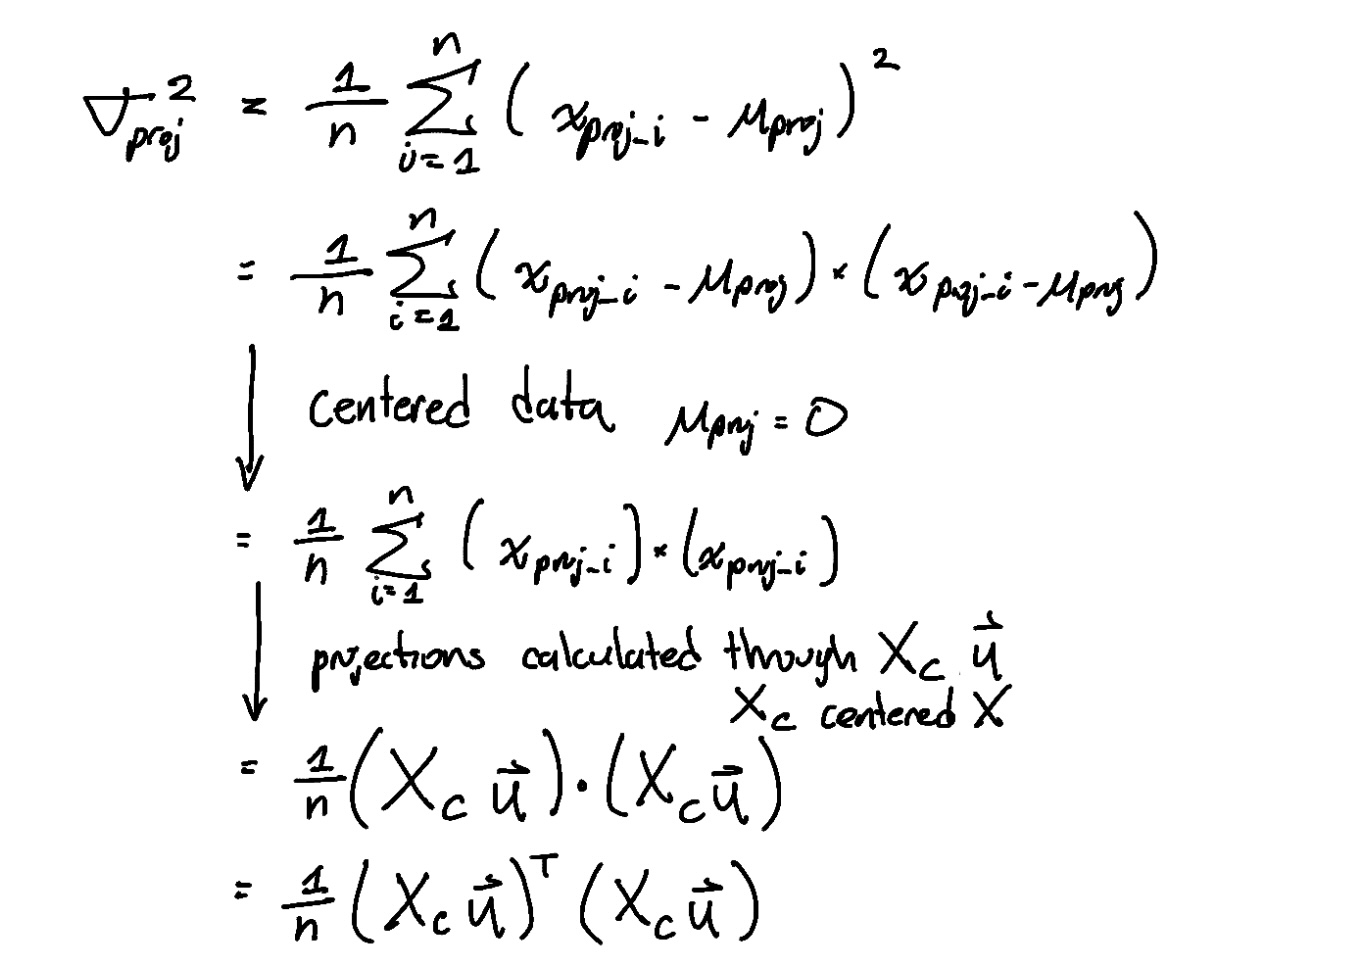 σ²_proj = 1/n Σ_{i=1}^{n} (x_{proj-i} - μ_proj)²
= 1/n Σ_{i=1}^{n} (x_{proj-i} - μ_proj) × (x_{proj-i} - μ_proj)
centered data μ_proj = 0
= 1/n Σ_{i=1}^{n} (x_{proj-i}) × (x_{proj-i})
projections calculated though X_c u⃗
X_c centered X
= 1/n (X_c u⃗) · (X_c u⃗)
= 1/n (X_c u⃗)^T (X_c u⃗)